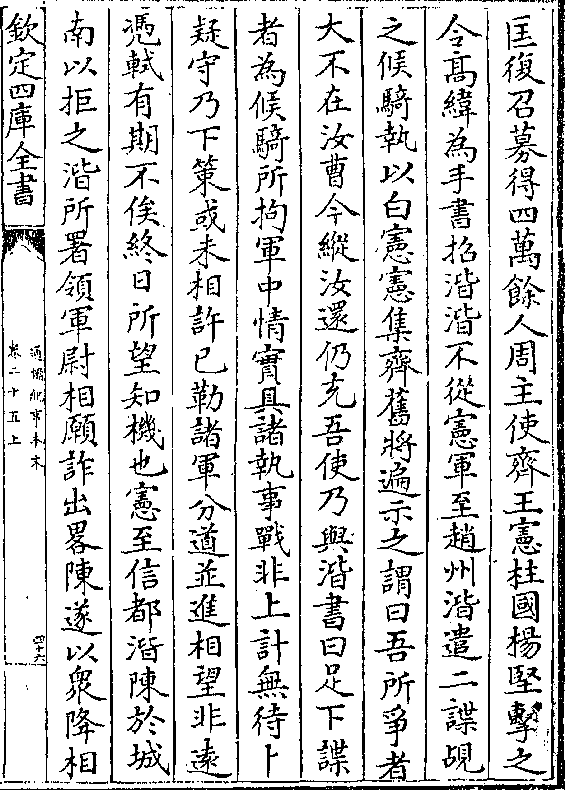 匡復召募得四萬餘人周主使齊王憲柱國楊堅擊之
令髙緯為手書招湝湝不從憲軍至趙州湝遣二諜覘
之候騎執以白憲憲集齊舊將遍示之謂曰吾所爭者
大不在汝曹今縱汝還仍充吾使乃與湝書曰足下諜
者為候騎所拘軍中情實具諸執事戰非上計無待卜
疑守乃下策或未相許已勒諸軍分道並進相望非逺
憑軾有期不俟終日所望知機也憲至信都湝陳於城
南以拒之湝所署領軍尉相願詐出畧陳遂以衆降相
欽定四庫全書
通鑑紀事本末
卷二十五上
四十六